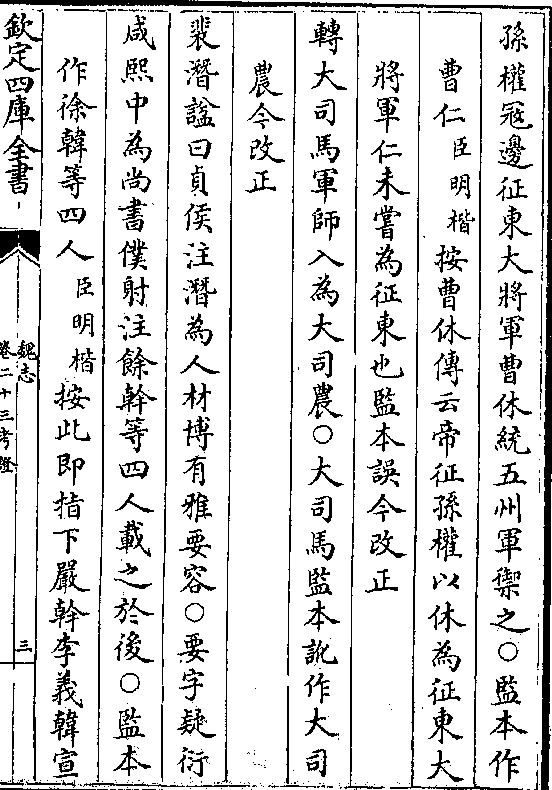 孫權冦邊征東大將軍曹休統五州軍禦之○監本作
曹仁臣明楷按曹休傳云帝征孫權以休為征東大
將軍仁未嘗為征東也監本誤今改正
轉大司馬軍師入為大司農○大司馬監本訛作大司
農今改正
裴潛諡曰貞侯注潛為人材博有雅要容○要字疑衍
咸熙中為尚書僕射注餘幹等四人載之於後○監本
作徐韓等四人臣明楷按此即指下嚴幹李義韓宣
欽定四庫全書
魏志
卷二十三考證
三